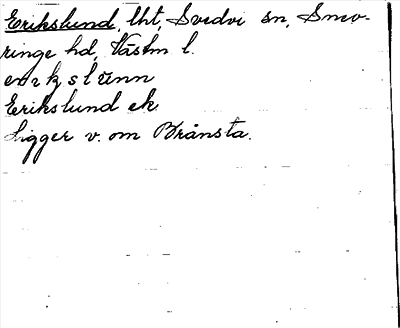 Erikslund, lht, Svedvi sn, Snev-
ringe hd, Västm l.
erikslunn
Erikslund ek
Ligger v. om Brånsta.